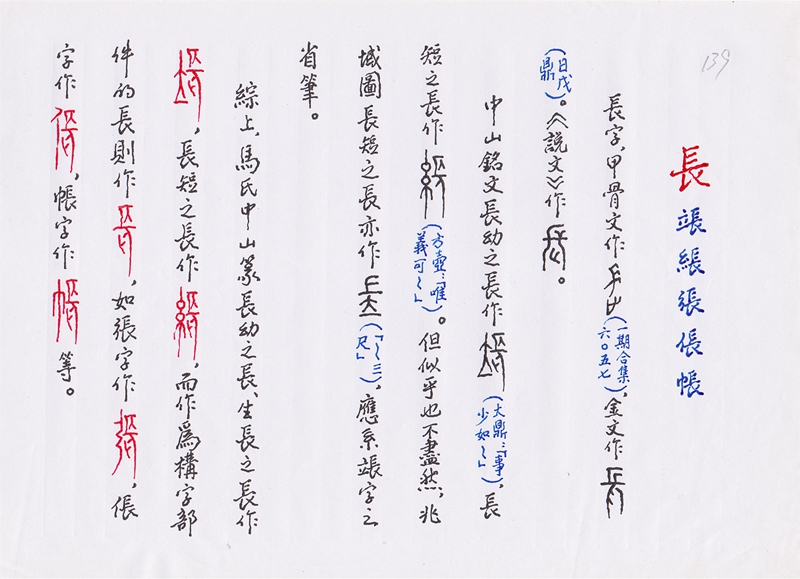 139
長 䛫 䋎 張 倀 帳
長字,甲骨文作(一期合集六〇五七),金文作
(日戊鼎)。《說文》作。
中山銘文長幼之長作(大鼎:「事少如〻」),長
短之長作(方壺:「唯義可〻」)。但似乎也不盡然,兆
域圖長短之長亦作(「〻三尺」),應系䛫字之
省筆。
綜上,馬氏中山篆長幼之長、生長之長作
,長短之長作,而作爲構字部
件的長則作,如張字作,倀
字作,帳字作等。